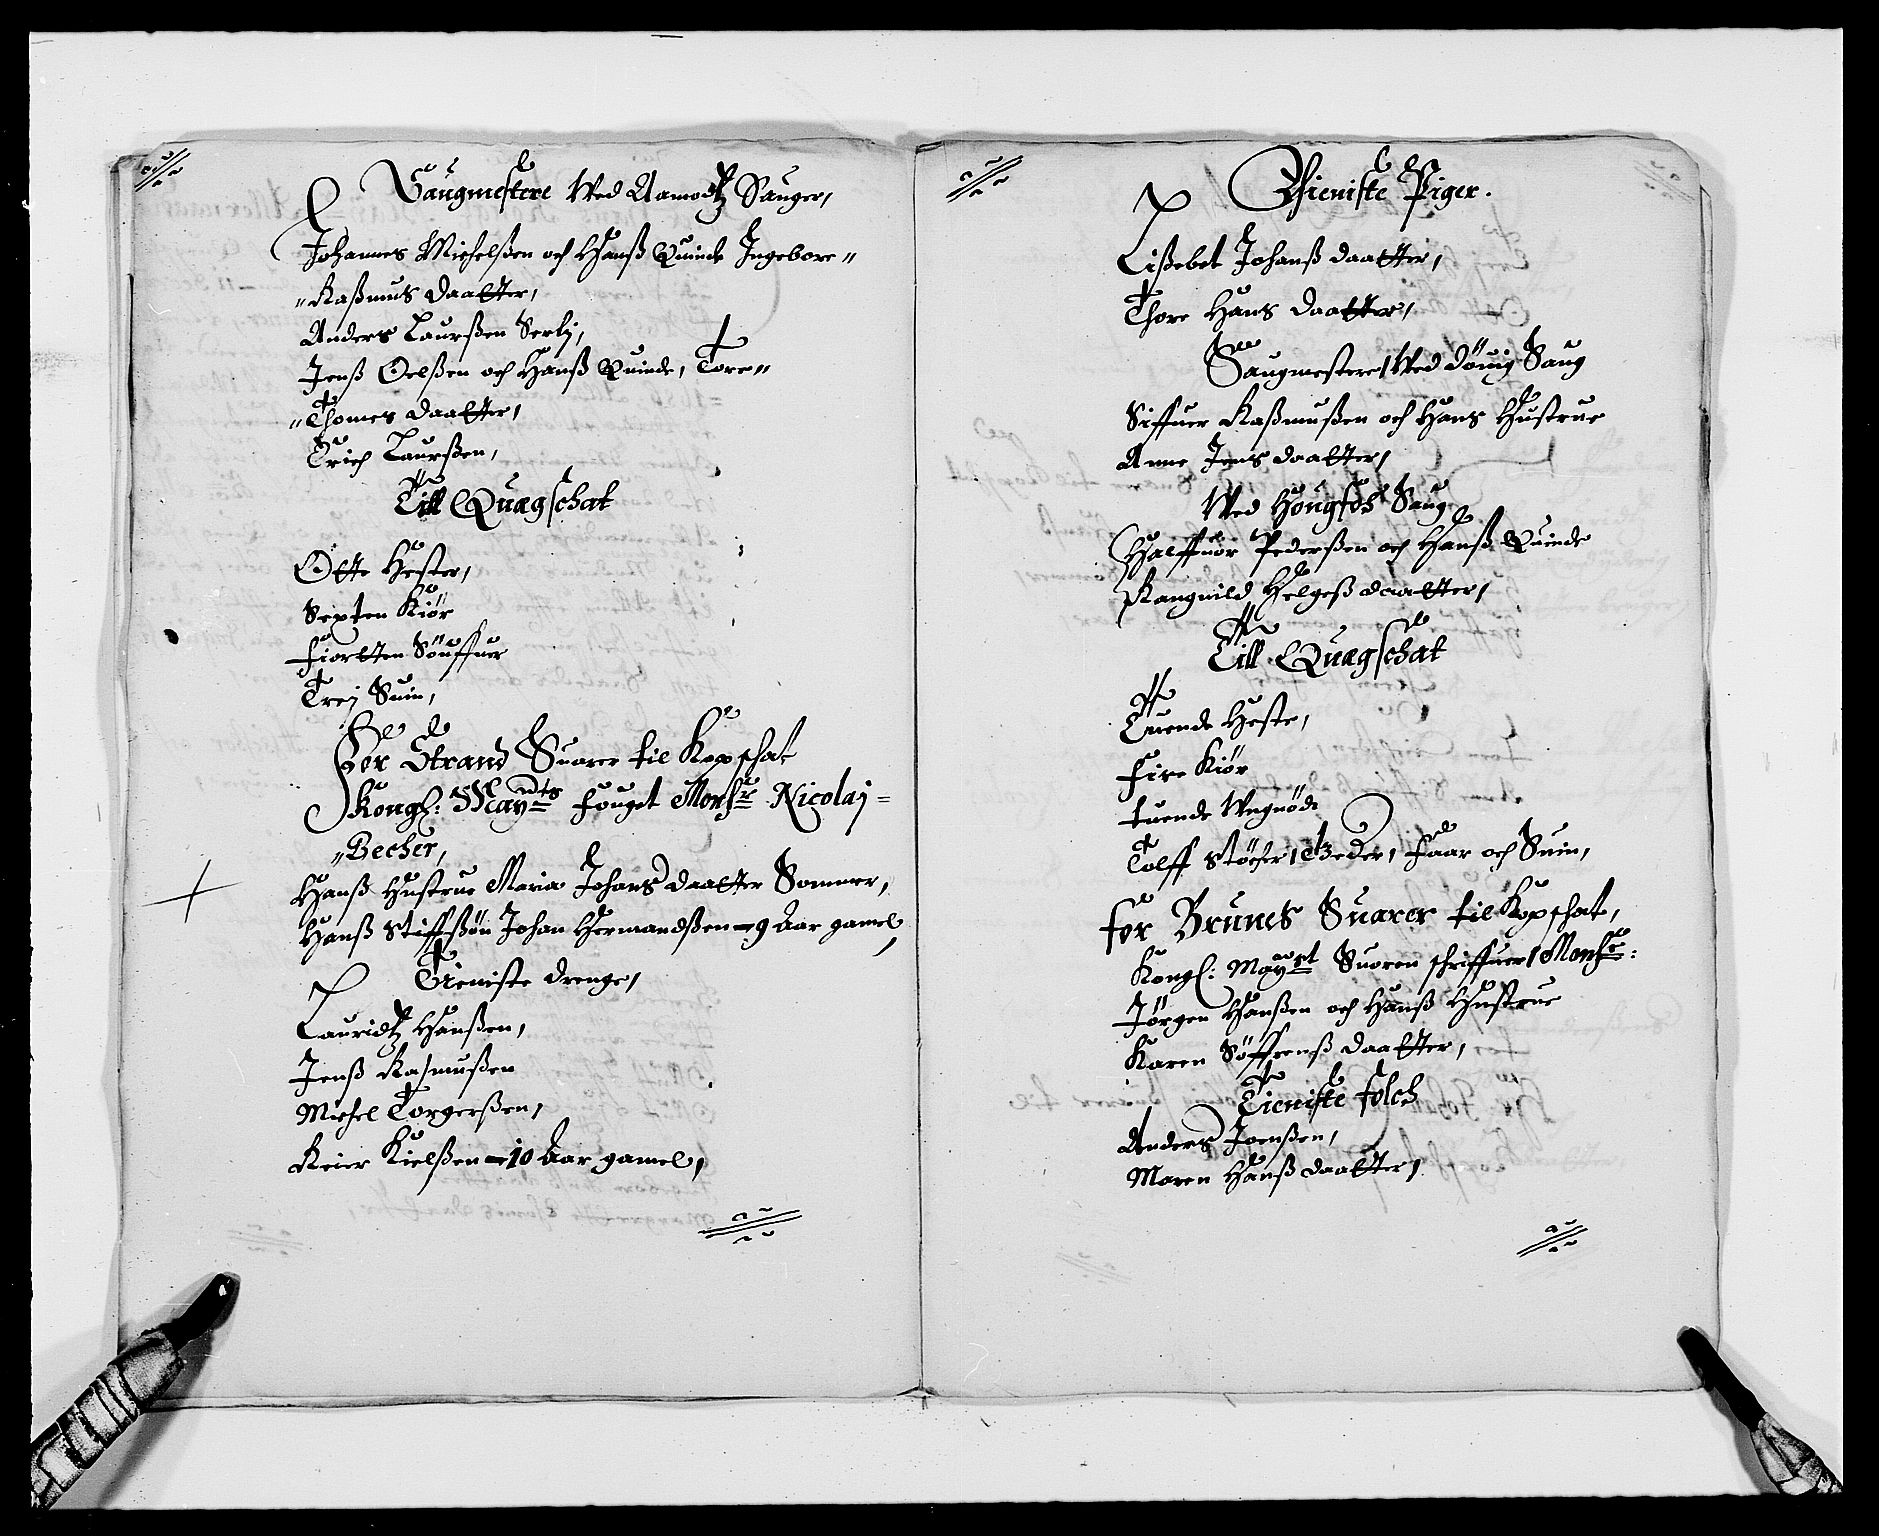 Saugmestere Wed Aamodtz Sauger,
Johannes Michelsßen och Hanß Quinde Ingebore"
"Raßmus daatter,
Anders Laurßen Serlj,
Jenß Oelßen och Hanß Quinde, Tore"
"Thomes daatter,
Erich Laurßen,
Till Quægschat
Otte Hester,
Sexten Kiør
Fiortten Söuffuer
Trej Suin,
For Strand Suarer til Kopschat
Kongl: Mayndts Fouget Monsr Nicolaj =
"Becher,
Hanß Hustrue Maria Johans daatter Sommer,
Hanß Stiffsön Johan Hermandßen - 9 Aar gamel,
Tieniste drenge,
Lauridtz Hanßen,
Jenß Rasmußen
Michel Torgerßen,
Reier Kielßen - 10 Aar gamel,
Thieniste Piger.
Lißebet Johanß daatter,
Thore Hans daatter,
Saugmestere, Wed döuig Saug
Siffuer Raßmußen och Hans Hustrue
Anne Jens daatter,
Wed Hougfos Saug
Halffuor Pederßen och Hanß Quinde
Rangnild Helgeß daatter,
Till Quægschat
Tuende Heste,
Fire Kiør
tuende Ungnöde
Tolff Støcher, Geder, Faar och Suin,
for Brunes Suarer til Kopschat,
Kongl: Mayest Suoren schriffuer, Monsr:
Jörgen Hanßen och Hanß Hustrue
Karen Söffrenß daatter,
Tieniste folch
Anders Joenßen,
Maren Hanß daatter,